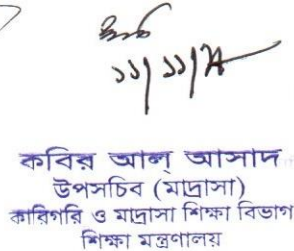 ১১/১১/১৯
কবির আল্ আসাদ
উপসচিব (মাদ্রাসা)
কারিগরি ও মাদ্রাসা শিক্ষা বিভাগ
শিক্ষা মন্ত্রণালয়